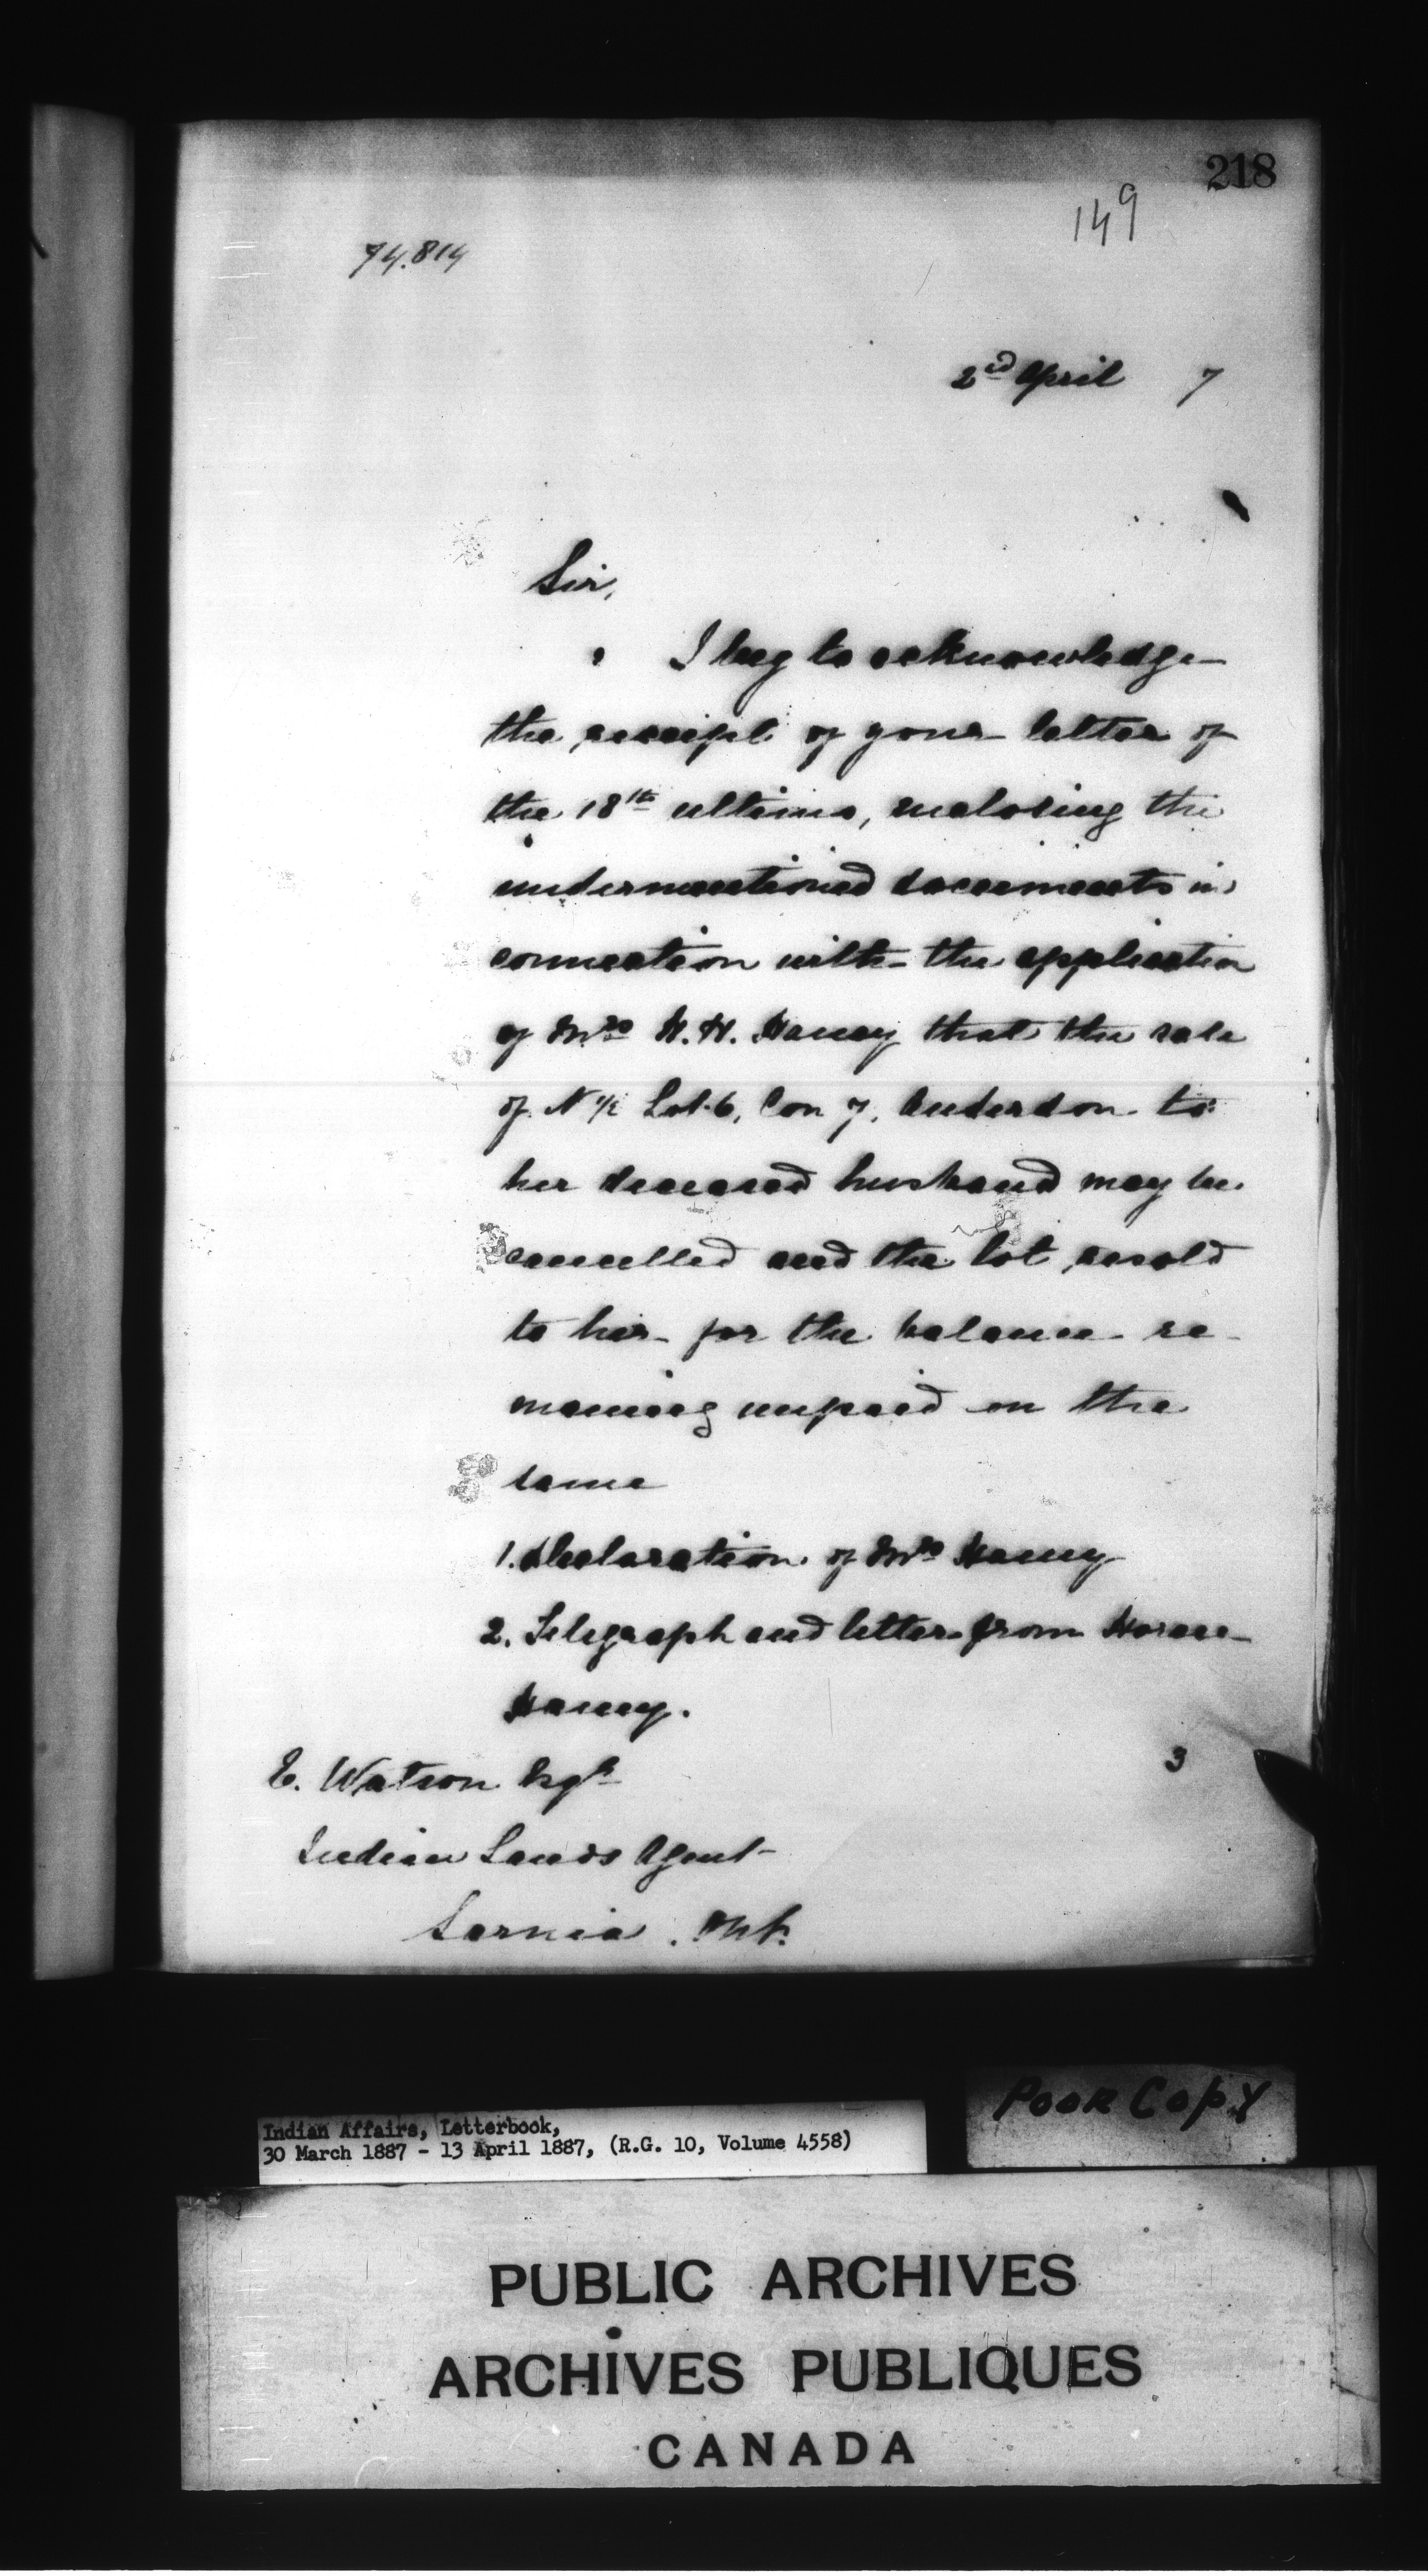 218
149
74.814
2nd April 7
Sir,
I beg to acknowledge
the receipt of your letter of
the 18th ultimo, enclosing the
undermentioned documents in
connection with the application
of Mrs H. H. Haney that the sale
of N 1/2 Lot 6, Con 7, Anderdon to
her deceased husband may be
cancelled and the lot resold
to her for the balance re-
maining unpaid on the
same
1. Declaration of Mrs Haney
2. Telegraph and letter from Horace
Haney.
3
E. Watson Esqr
Indian Lands Agent
Sarnia. Ont.
Poor Copy
Indian Affairs, Letterbook,
30 March 1887 - 13 April 1887, (R.G. 10, Volume 4558)
PUBLIC ARCHIVES
ARCHIVES PUBLIQUES
CANADA